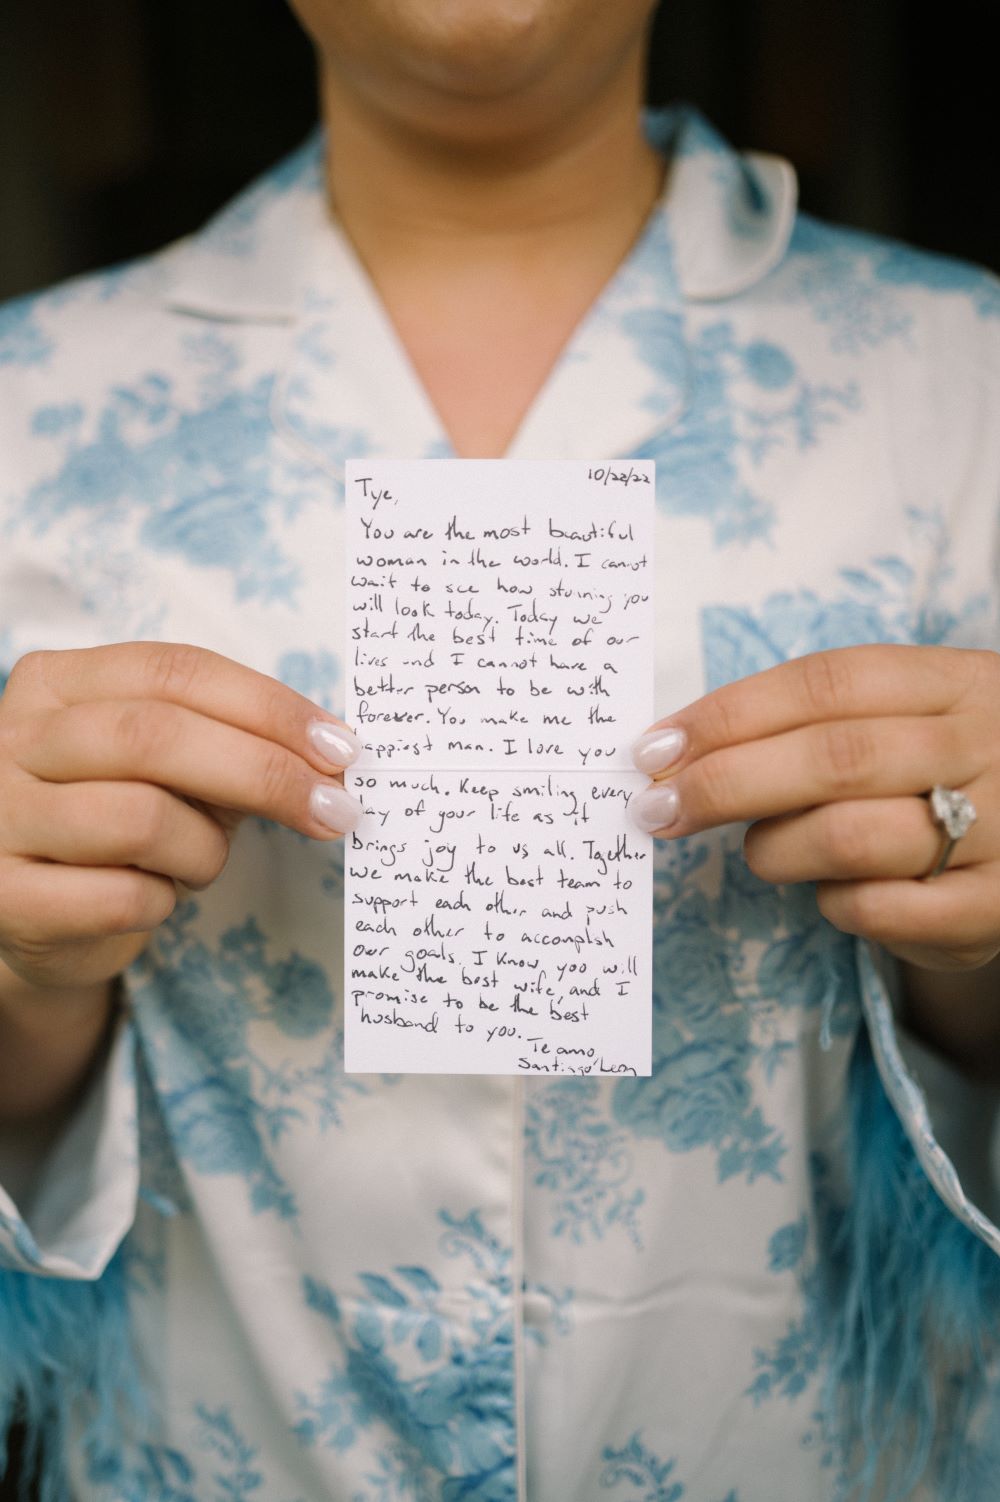 10/22/22
Tye,
You are the most beautiful
woman in the world. I cannot
wait to see how stunning you
will look today. Today we
start the best time of our
lives and I cannot have a
better person to be with
forever. You make me the
happiest man. I love you
so much. Keep smiling every
day of your life as it
brings joy to us all. Together
we make the best team to
support each other and push
each other to accomplish
our goals. I know you will
make the best wife, and I
promise to be the best
husband to you.
Te amo,
Santiago Leon